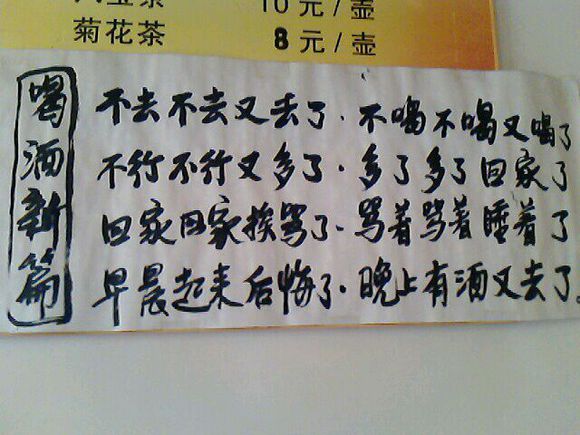 10元/壶
菊花茶 8元/壶
喝酒新篇
不去不去又去了.不喝不喝又喝了
不行不行又多了.多了多了回家了
回家回家挨骂了.骂着骂着睡着了
早晨起来后悔了.晚上有酒又去了.